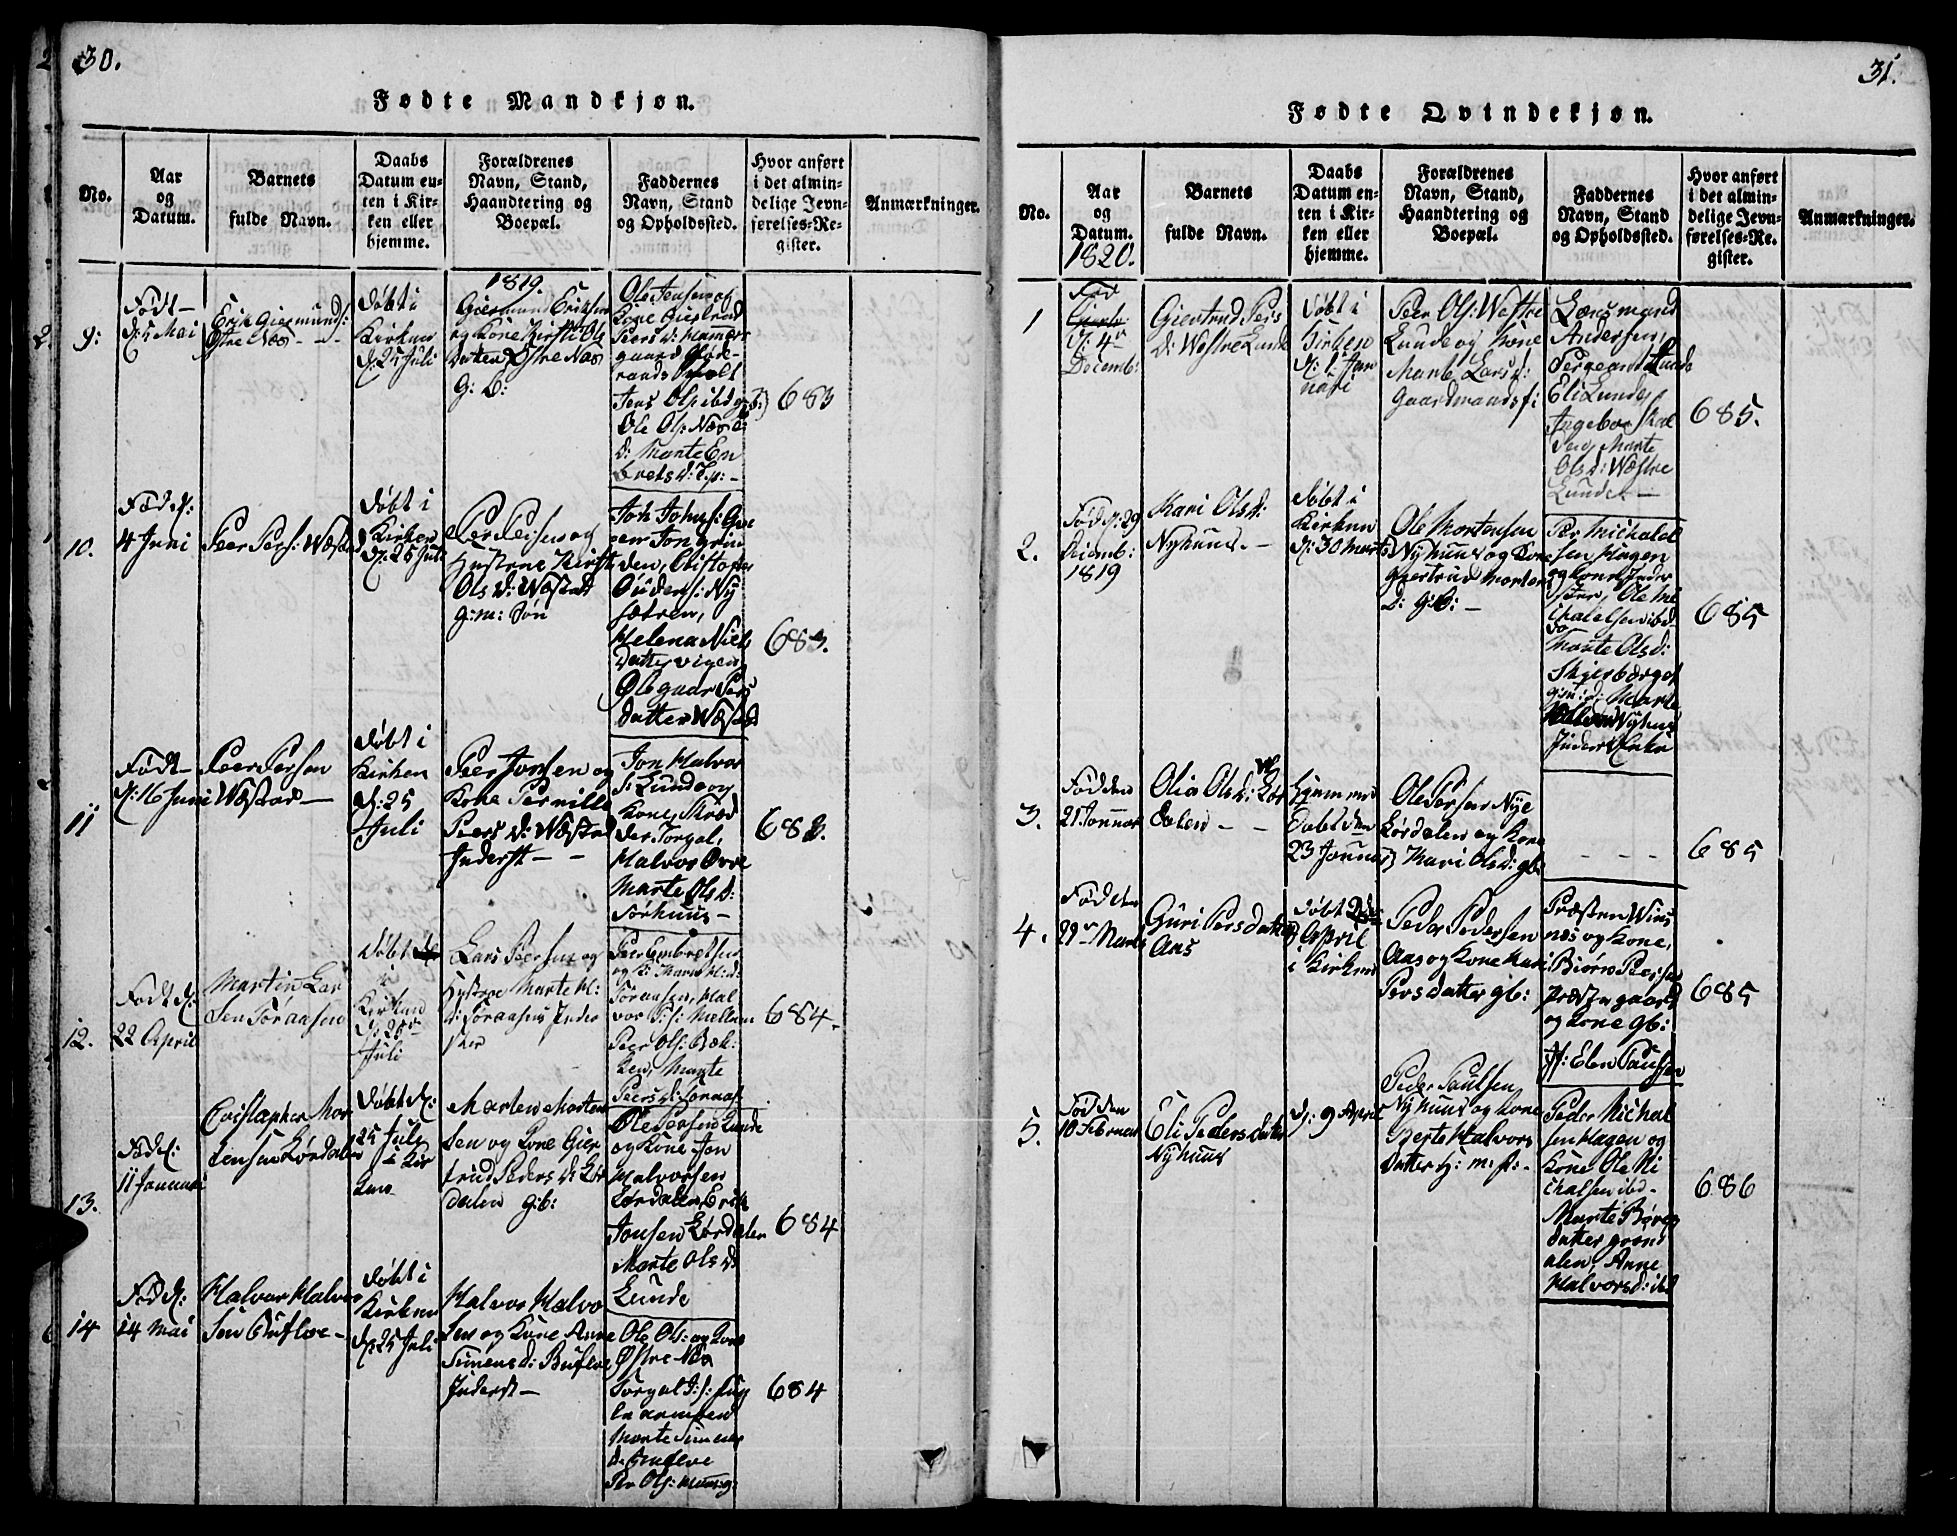 30.
Fødte Mandkjøn.
No.
Aar
og
Datum.
Barnets
fulde Navn.
Daabs
Datum en-
ten i Kir-
ken eller
hjemme.
Forældrenes
Navn, Stand,
Haandtering og
Boepæl.
Faddernes
Navn, Stand
og Opholdssted.
Hvor anført
i det almin-
delige Jevn-
førelses-Re-
gister.
Anmærkninger.
9:
Født
d: 5 Mai
Erik Giesmunds:
Østre Næs
Døbt i
Kirken
d. 25 Juli
1819.
Giesmund Eriksen
og Kone Kirsti Ols
Datter Østre Næs
g: b:
Ole Jensen
Kone Giertrud
Peers d:
Jens Ols: ibd
Ole Ols: Næs
d: Marte En
brets d:
683
10.
Fød d:
4 Juni
Peer Pers: Wæstad
Døbt i
Kirken
d. 25 Juli
Peer Peersen og
Hustrue Kirsti
Ols d: Wæstad
g: m: Søn
den, Cristopher
sætren,
Helena Niels
Datter
Olegaar Pers
datter Wæstad
683.
11
Født
d: 16 Juni
Peer Persen
Wæstad
Døbt i
Kirken
d: 25
Juli
Peer Jonsen og
Kone Pernille
Peers d: Wæstad
Inderst
Jon Halvor
s: Lunde og
Kone,
Halvor
Marte Ols d:
Sørhuus
683.
12.
Født d:
22 April
Martin Lar
sen Søraasen
Døbt
i
Kirken
d: 25
Juli
Lars Peersen og
Hustrue Marte H:
d: Søraasen Inder
ster
Peer Embretsen
Søraasen, Hal
vor
Peer Ols: Bæk-
ken, Marte
Peers d: Søraas
684.
13.
Fød d:
11 Januari
Cristopher Mor
tensen Lørdalen
Døbt d:
25 July
i Kir
ken
Morten Morten
sen og Kone Gier
trud Peders d: Lør
dalen g: b:
Ole Persen Lunde
og Kone Jon
Halvorsen
Lørdalen, Erik
Jonsen Lørdalen
Marte Ols d:
Lunde
684
14
Fød d:
14 Mai
Halvor Halvor
sen Bufloe
Døbt i
Kirken
d: 25 Juli
Halvor Halvo
sen og Kone Anne
Simens d: Bufloe
Inderst
Ole Ols: og Kone
Østre Næs
Marte Simens
d: Bufloe
Per Ols:
684
31.
Fødte Qvindekjøn.
No.
Aar
og
Datum.
1820.
Barnets
fulde Navn.
Daabs
Datum en-
ten i Kir-
ken eller
hjemme.
Forældrenes
Navn, Stand,
Haandtering og
Boepæl.
Faddernes
Navn, Stand
og Opholdssted.
Hvor anført
i det almin-
delige Jevn-
førelses-Re-
gister.
Anmærkninger.
1
Fød
d: 4de
Decemb:
Giertrud Pers
d: Westre Lunde
Døbt i
Kirken
d: 1 Jan
uari
Peer Ols: Westre
Lunde og Kone
Marte Lars d:
Gaardmandsf:
Lænsmand
Andersen,
Sergeant Lunde
Eli Lunde,
Ingebor
Marte
Ols d: Westre
Lunde
685.
2.
Fød d: 29
Decemb:
1819
Kari Ols d:
Nyhuus
Døbt i
Kirken
d: 30 Marts
Ole Mortensen
Nyhuus og Kone
Giertrud Morten
d: g: b:
Per Michael
sen Hagen
og Kone Inder
ster, Ole Mi
chaelsen ibd
Marte Ols d:
Skjesberget
Marte
Nyhuus
685
3.
Fød den
21 Januar
Olia Ols d: Lør
dalen
Hjemme
Døbt den
23 Januar
Ole Persen Nye
Lørdalen og Kone
Kari Ols d: gb:
685
4.
Fød den
29 Marts
Guri Pers datter
Aas
Døbt 2den
April
i Kirken
Peder Pedersen
Aas og Kone Kari
Persdatter gb:
Præsten Wins
nes og Kone,
Biørn Peersen
Præstegaard
og Kone gb:
Jf: Elen Paulsen
685
5.
Fød den
10 Februar
Eli Pedersdatter
Nyhuus
d: 9 April
Peder Paulsen
Nyhuus og Kone
Berte Halvors
datter h: m: f:
Peder Michael
sen Hagen og
Kone Ole Mi
chalsen ibd
Marte
datter
dalen, Anne
Halvors d: ibd
686